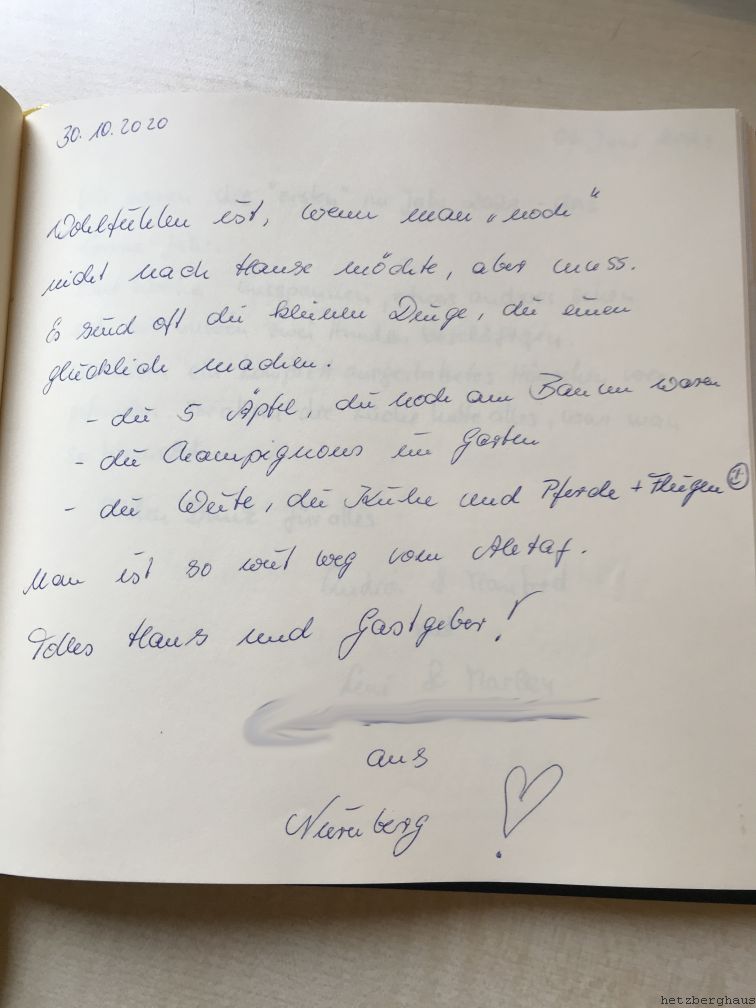 30.10.2020
Wohlfühlen ist, wenn man „noch“
nicht nach Hause möchte, aber muss.
Es sind oft die kleinen Dinge, die einen
glücklich machen.
- die 5 Äpfel, die noch am Baum waren
- die Champignons im Garten
- die Weite, die Kühe und Pferde + Fliegen
Man ist so weit weg vom Alltag.
Tolles Haus und Gastgeber!
aus
Nürnberg
hetzberghaus